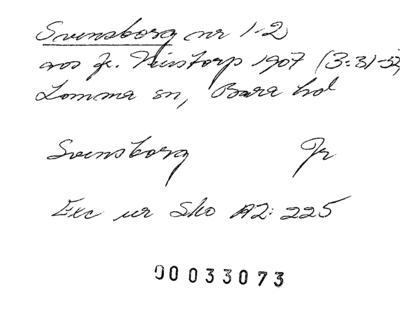 Svensborg nr 1-2
avs fr. Pinstorp 1907 (3:31-52)
Lomma sn, Bara hd
Svensborg Jr
Exc ur Sko A2: 225
00033073